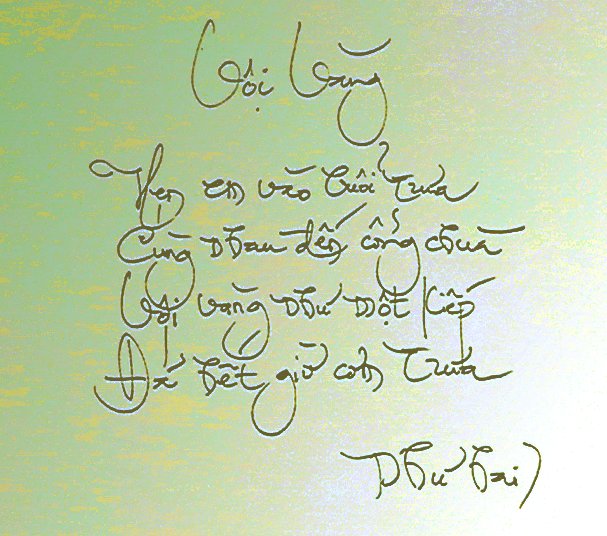 Vội Vàng
Hẹn em vào buổi trưa
Cùng nhau đến cổng chùa
Vội vàng như một kiếp
Đã hết giờ con trưa
Như hai